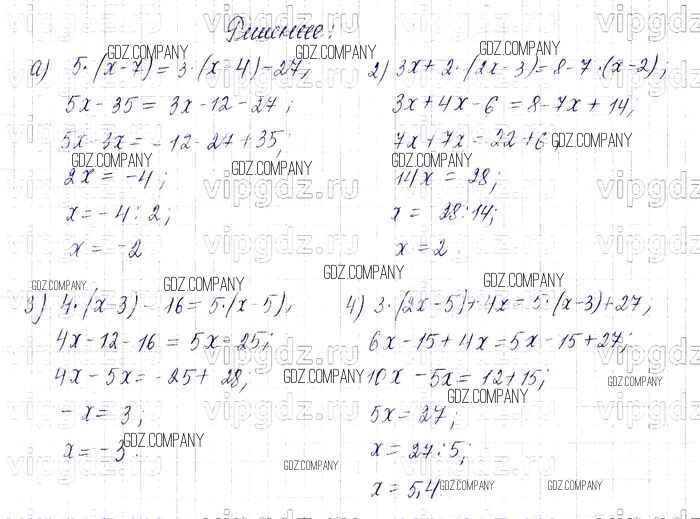 Решение:
а) 5·(x-7)=3·(x-4)-27;
5x-35=3x-12-27;
5x-3x=-12-27+35;
2x=-4;
x=-4:2;
x=-2
2) 3x+2·(2x-3)=8-7·(x-2);
3x+4x-6=8-7x+14;
7x+7x=22+6;
14x=28;
x=28:14;
x=2
3) 4·(x-3)-16=5·(x-5);
4x-12-16=5x-25;
4x-5x=-25+28;
-x=3;
x=-3.
4) 3·(2x-5)+4x=5·(x-3)+27;
6x-15+4x=5x-15+27;
10x-5x=12+15;
5x=27;
x=27:5;
x=5,4
GDZ.COMPANY
vipgdz.ru